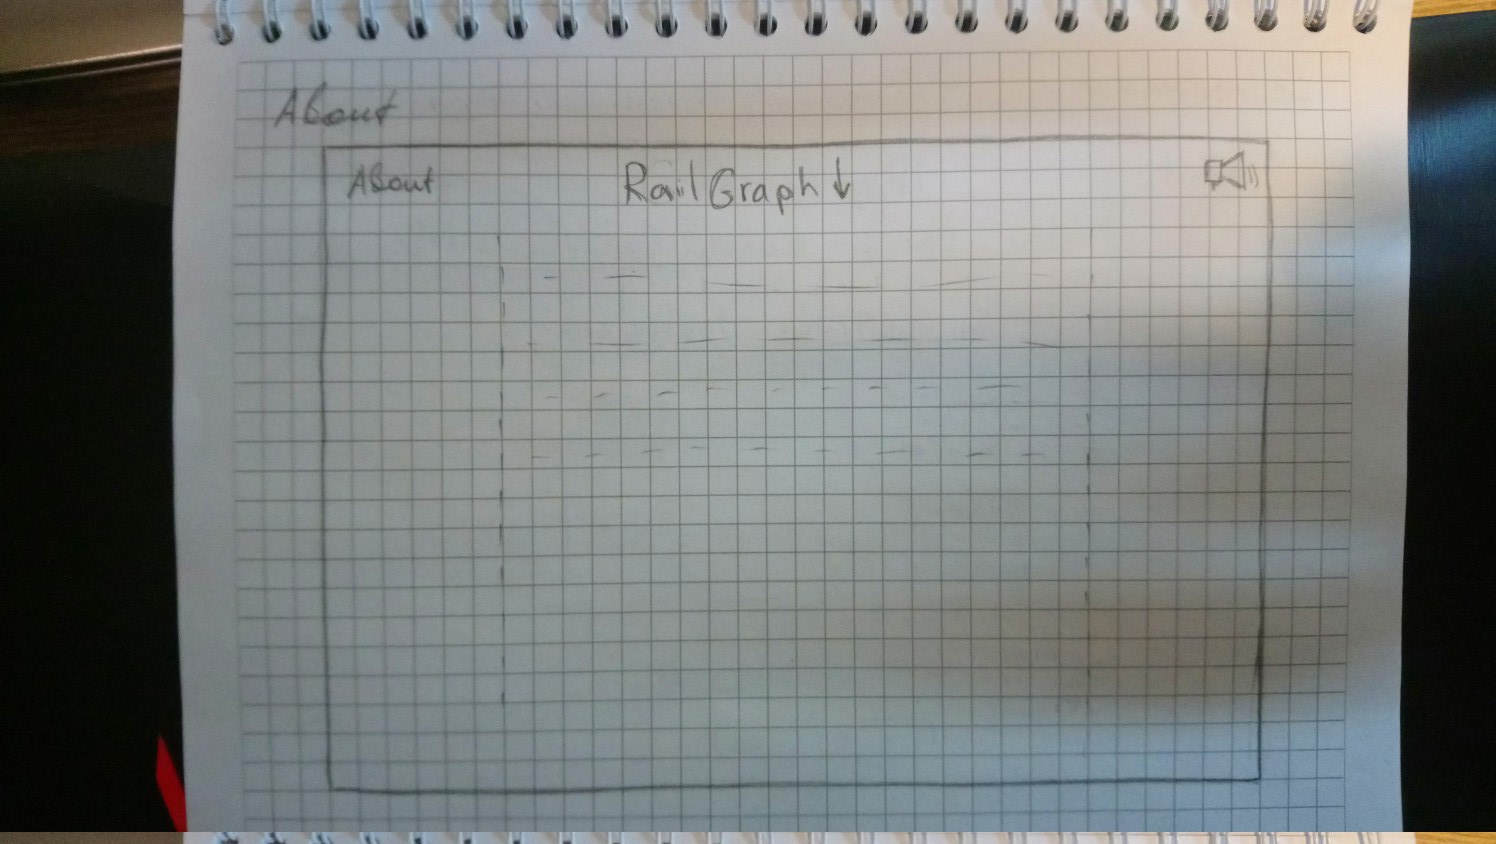 About
About RailGraph ↓